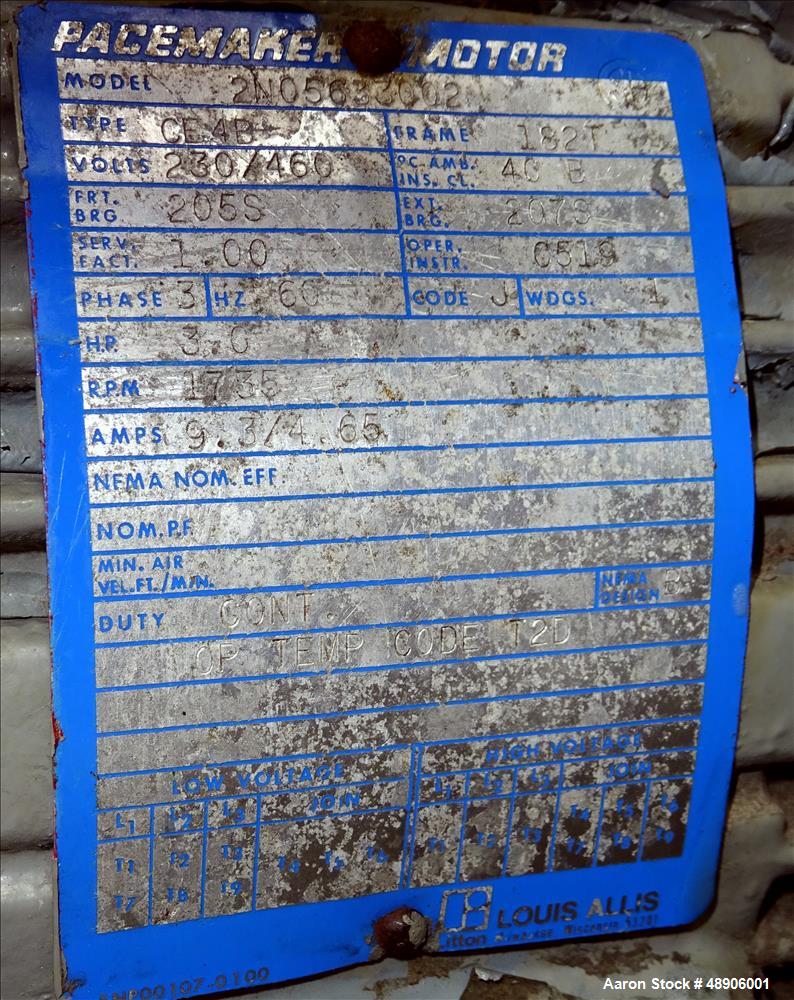 PACEMAKER MOTOR
MODEL 2N05633002
TYPE CE4B FRAME 182T
VOLTS 230/460 °C AMB. INS. CL. 40 B
FRT. BRG. 205S EXT. BRG. 207S
SERV. FACT. 1.00 OPER. INSTR. C519
PHASE 3 HZ 60 CODE J WDGS. 1
H.P. 3.0
RPM 1735
AMPS 9.3/4.65
NEMA NOM. EFF.
NOM. P.F.
MIN. AIR
VEL. FT./MIN.
DUTY CONT. NEMA DESIGN B
OP TEMP CODE T2D
LOW VOLTAGE HIGH VOLTAGE
L1 L2 L3 JOIN L1 L2 L3 JOIN
T1 T2 T3 T4 T5 T6 T1 T2 T3 T4 T5 T6
T7 T8 T9 T7 T8 T9
LOUIS ALLIS
Litton Milwaukee, Wisconsin 53201
00107-0100
Aaron Stock # 48906001